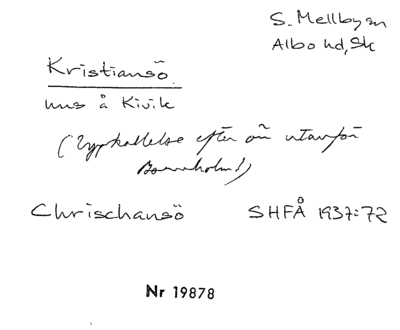 S. Mellby sn
Albo hd, Sk
Kristiansö
hus å Kivik
(Uppkallelse efter ön utanför
Bornholm!)
Chrischansö SHFÅ 1937:72
Nr 19878